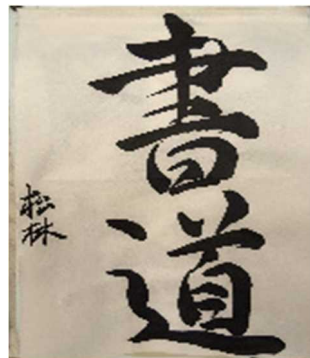 書道
松林